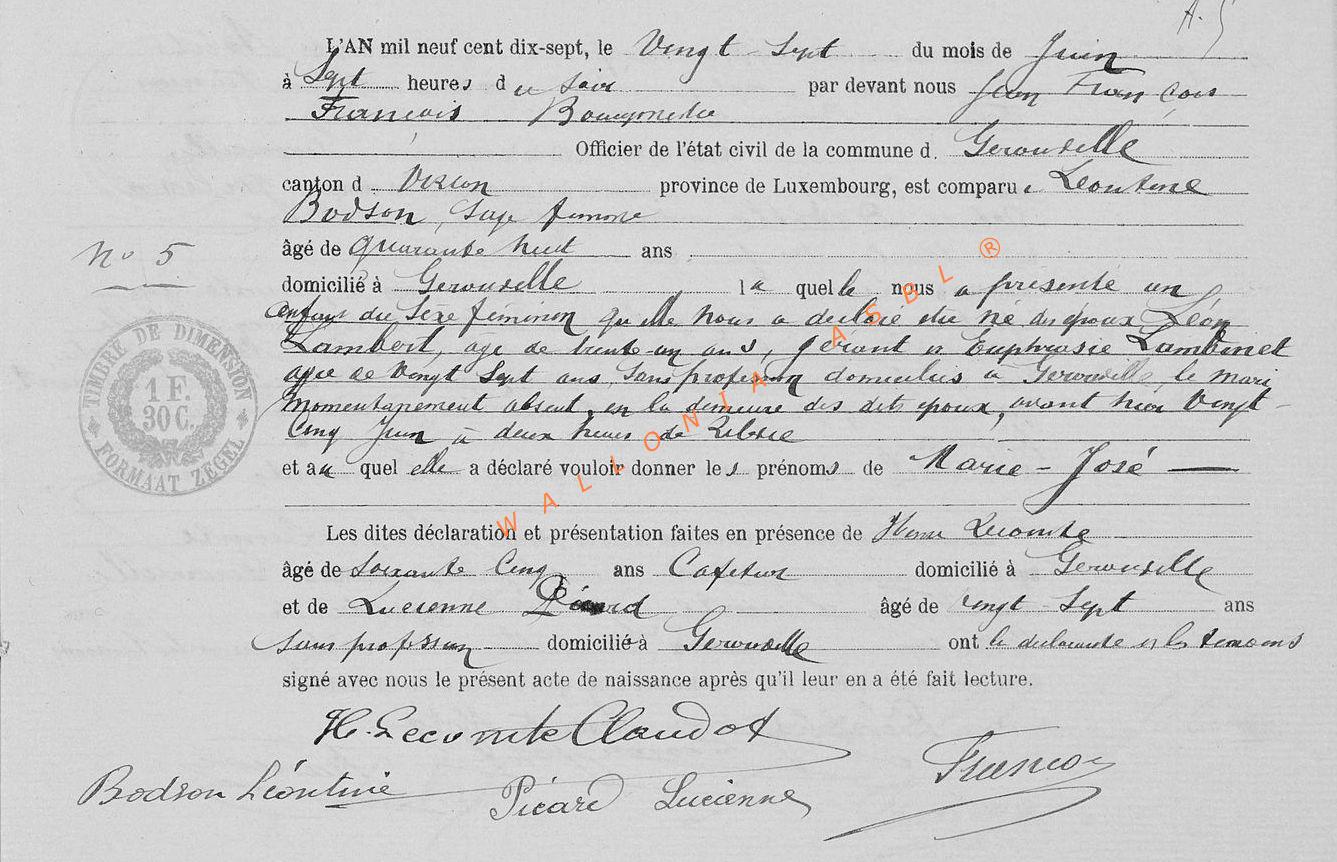 A. 5
L'AN mil neuf cent dix-sept, le Vingt Sept du mois de Juin
à Sept heures du soir par devant nous Jean François
François Bourgmestre
Officier de l'état civil de la commune d. Gerouville
canton d Virton province de Luxembourg, est comparue Léontine
Bodson, Sage femme
âgé de quarante huit ans
No 5
domicilié à Gerouville la quelle nous a présenté un
enfant du Sexe féminin qu'elle nous a déclaré être né des époux Léon
Lambert, agé de trente-un ans, gérant et Euphrasie Lambinet
agée de Vingt Sept ans, Sans profession domiciliés à Gerouville le mari
momentanément absent, en la demeure des dits époux, avant hier Vingt-
Cinq Juin à deux heures de
et au quel elle a déclaré vouloir donner les prénoms de Marie-José
Les dites déclaration et présentation faites en présence de Henri Lecomte
âgé de Soixante Cinq ans Cafetier domicilié à Gerouville
et de Lucienne Picard âgé de vingt Sept ans
sans profession domicilié à Gerouville ont la déclarante et les témoins
signé avec nous le présent acte de naissance après qu'il leur en a été fait lecture.
H. Lecomte Claudot
Bodson Léontine Picard Lucienne François
TIMBRE DE DIMENSION
1 F.
30 C.
FORMAAT ZEGEL
WALLONIA ASBL ®